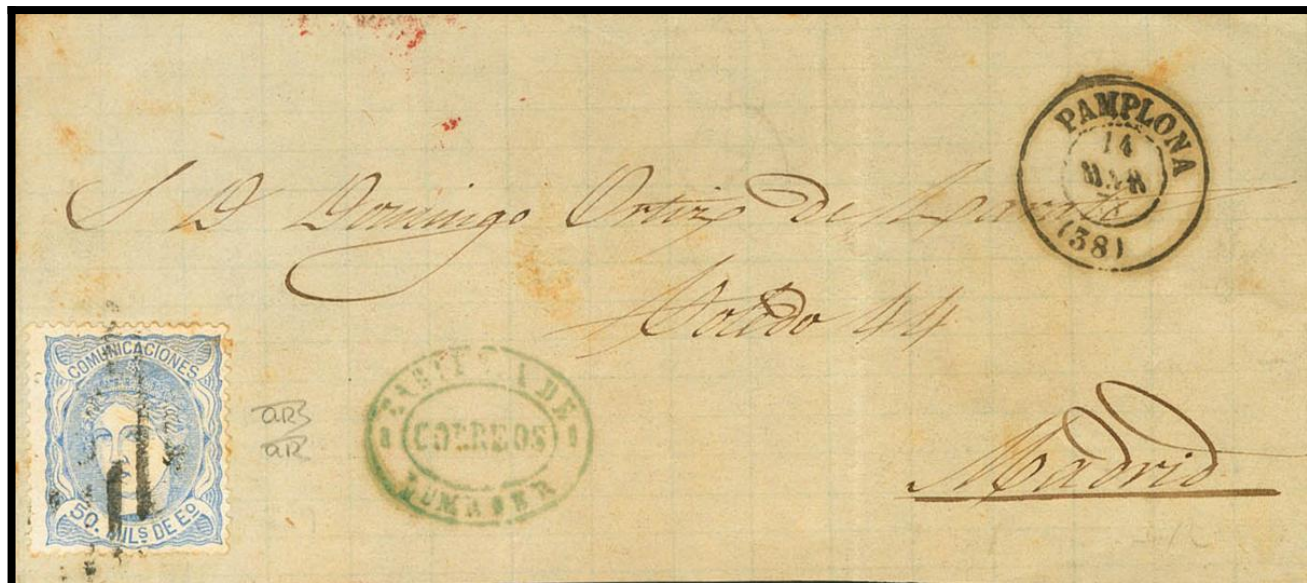 PAMPLONA
14
MAR
(38)
S D Domingo Ortiz de
Toledo 44
Madrid
COMUNICACIONES
50. MILS DE Eº
CARTERIA DE
CORREOS